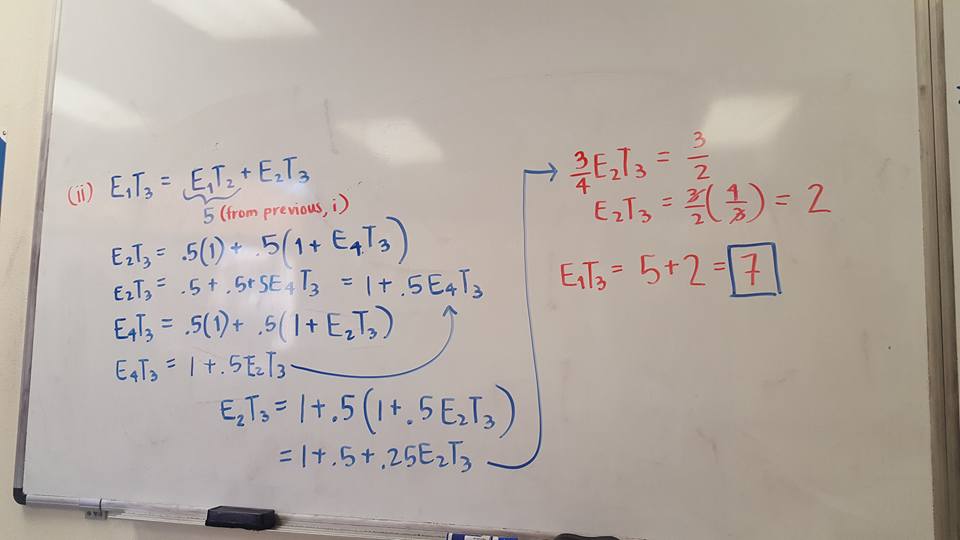 (ii) E₁T₃ = E₁T₂ + E₂T₃
5 (from previous, i)
E₂T₃ = .5(1) + .5(1 + E₄T₃)
E₂T₃ = .5 + .5+5E₄T₃ = 1 + .5E₄T₃
E₄T₃ = .5(1) + .5(1 + E₂T₃)
E₄T₃ = 1 + .5E₂T₃
E₂T₃ = 1 + .5(1 + .5E₂T₃)
= 1 + .5 + .25E₂T₃
3/4 E₂T₃ = 3/2
E₂T₃ = 3/2 (4/3) = 2
E₁T₃ = 5 + 2 = 7